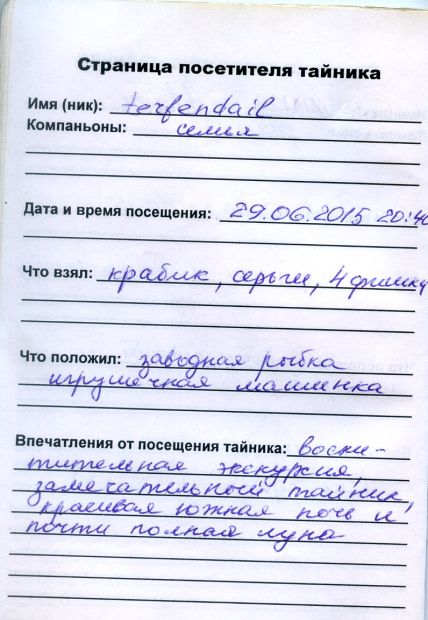 Страница посетителя тайника
Имя (ник): terfendail
Компаньоны: семья
Дата и время посещения: 29.06.2015 20:40
Что взял: крабик, серьги, 4 фишки
Что положил: заводная рыбка
игрушечная машинка
Впечатления от посещения тайника: восхи-
тительная экскурсия,
замечательный тайник,
красивая южная ночь и
почти полная луна